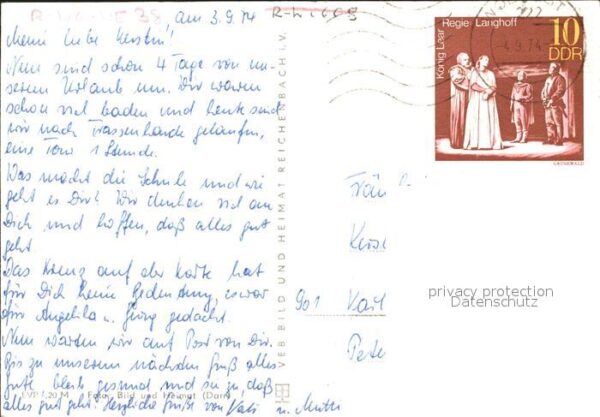 am 3.9.74
Meine liebe Kerstin!
Nun sind schon 4 Tage von un-
serem Urlaub um. Wir waren
schon viel baden und heute sind
wir nach Trassenheide gelaufen,
eine Tour 1 Stunde.
Was macht die Schule und wie
geht es Dir? Wir denken viel an
Dich und hoffen, daß alles gut
geht.
Das Kreuz auf der Karte hat
für Dich keine Bedeutung, es war
für Angelika u. Georg gedacht.
Nun warten wir auf Post von Dir.
Bis zu unserem nächsten Gruß alles
gute bleib gesund und sie zu, daß
alles gut geht. Herzliche Grüße von Vati u. Mutti
Foto: Bild und Heimat (Darr)
VEB BILD UND HEIMAT REICHENBACH i.V.
König Lear Regie: Langhoff
10
DDR
4.9.74
901 Karl
privacy protection
Datenschutz